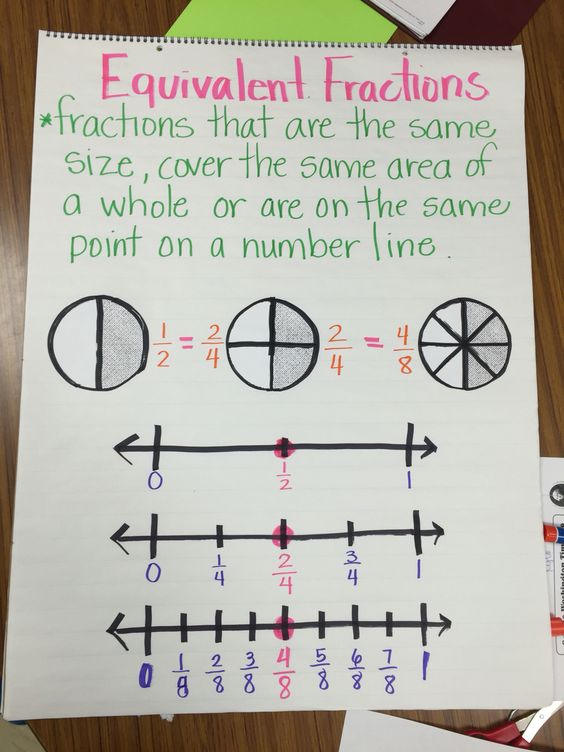 Equivalent Fractions
*fractions that are the same
size, cover the same area of
a whole or are on the same
point on a number line.
1/2 = 2/4 2/4 = 4/8
0 1/2 1
0 1/4 2/4 3/4 1
0 1/8 2/8 3/8 4/8 5/8 6/8 7/8 1
Washington Tim